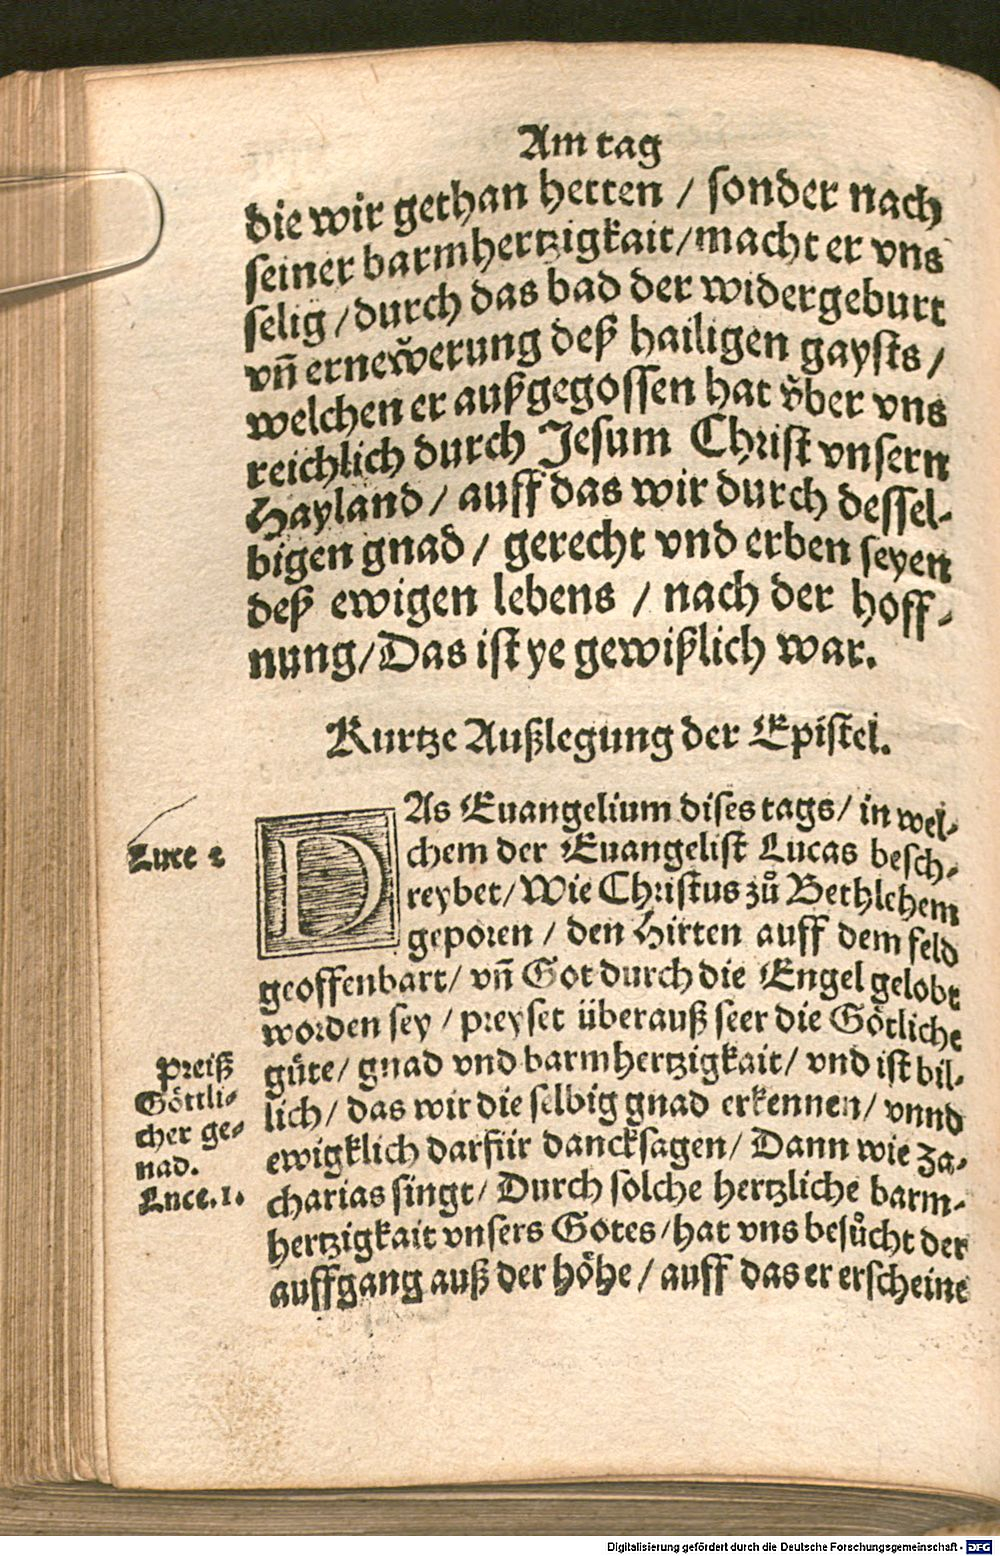 Am tag
die wir gethan hetten / sonder nach
seiner barmhertzigkait/macht er vns
selig /durch das bad der widergeburt
vñ ernewͤerung deß hailigen gaysts /
welchen er außgegossen hat vͤber vns
reichlich durch Jesum Christ vnsern
Hayland / auff das wir durch dessel-
bigen gnad / gerecht vnd erben seyen
deß ewigen lebens / nach der hoff-
nung/Das ist ye gewißlich war.
Kurtze Außlegung der Epistel.
DAs Euangelium dises tags/ in wel-
Luce 2
chem der Euangelist Lucas besch-
reybet/Wie Christus zů Bethlehem
geporen / den Hirten auff dem feld
geoffenbart/ vñ Got durch die Engel gelobt
worden sey / preyset überauß seer die Goͤtliche
preiß
Göttli-
cher ge-
nad.
Luce.1.
guͤte/ gnad vnd barmhertzigkait/ vnd ist bil-
lich/ das wir die selbig gnad erkennen/ vnnd
ewigklich darfür dancksagen/ Dann wie Za-
charias singt/ Durch solche hertzliche barm-
hertzigkait vnsers Gotes/hat vns besůcht der
auffgang auß der hoͤhe / auff das er erscheine
Digitalisierung gefördert durch die Deutsche Forschungsgemeinschaft - DFG